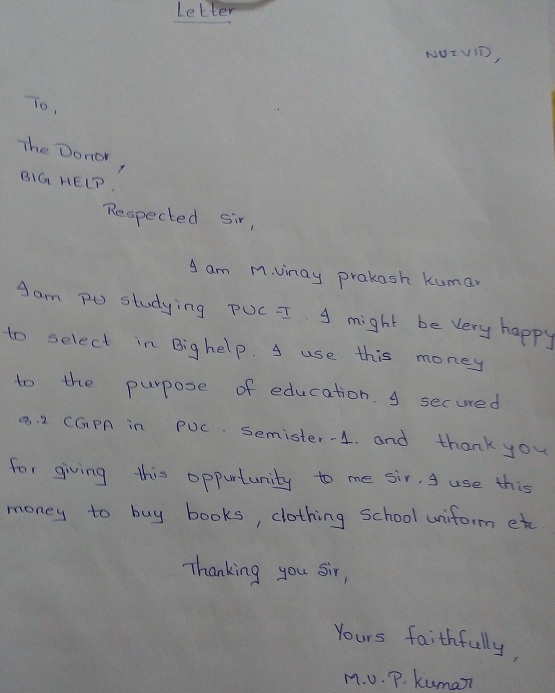 Letter
NUZVID,
To,
The Donor,
BIG HELP.
Respected Sir,
I am M.vinay prakash kumar.
I am studying PUC-I. I might be very happy
to select in Big help. I use this money
to the purpose of education. I secured
CGPA in PUC. Semister-1. and thank you
for giving this oppurtunity to me sir. I use this
money to buy books, clothing school uniform etc
Thanking you Sir,
Yours faithfully,
M.V.P. kumar